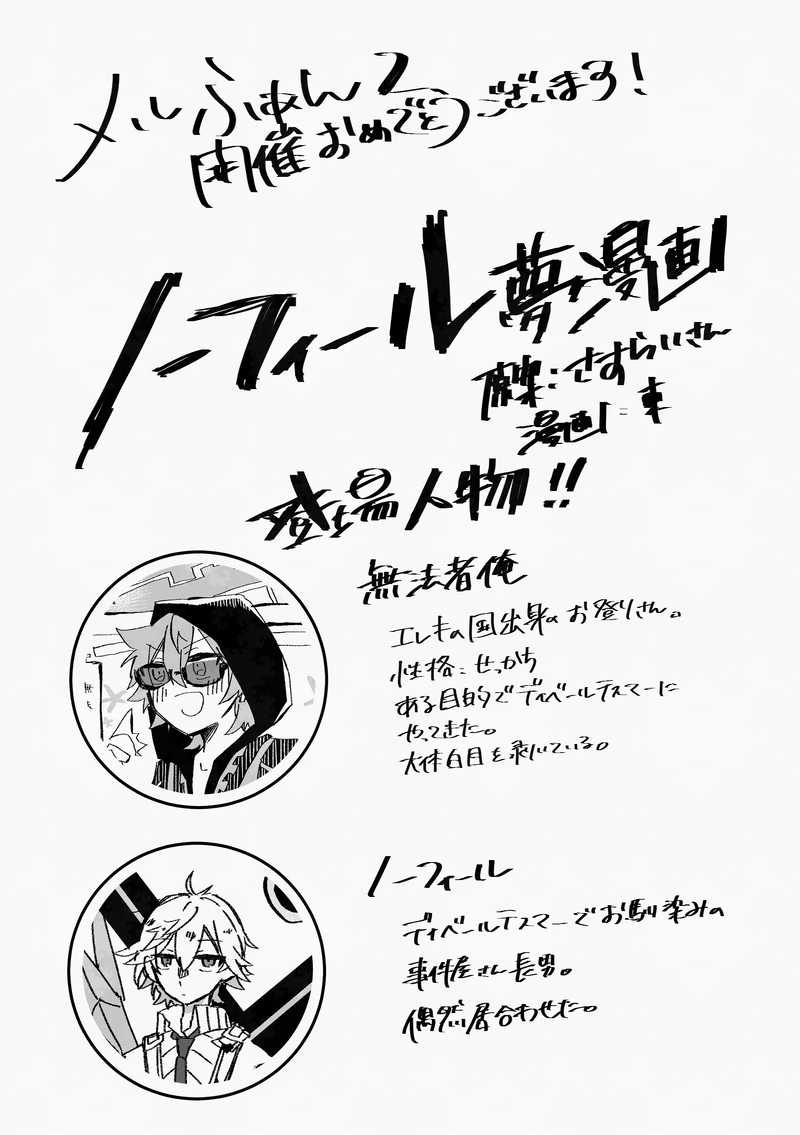 メルふぁん2
開催おめでとうございます!
ノーフィール夢漫画
原案:さすらいさん
漫画:東
登場人物!!
無法者俺
エレキの国出身のお登りさん。
性格:せっかち
ある目的でディベールテスマーに
やってきた。
大体白目を剥いている。
ノーフィール
ディベールテスマーでお馴染みの
事件屋さん長男。
偶然居合わせた。